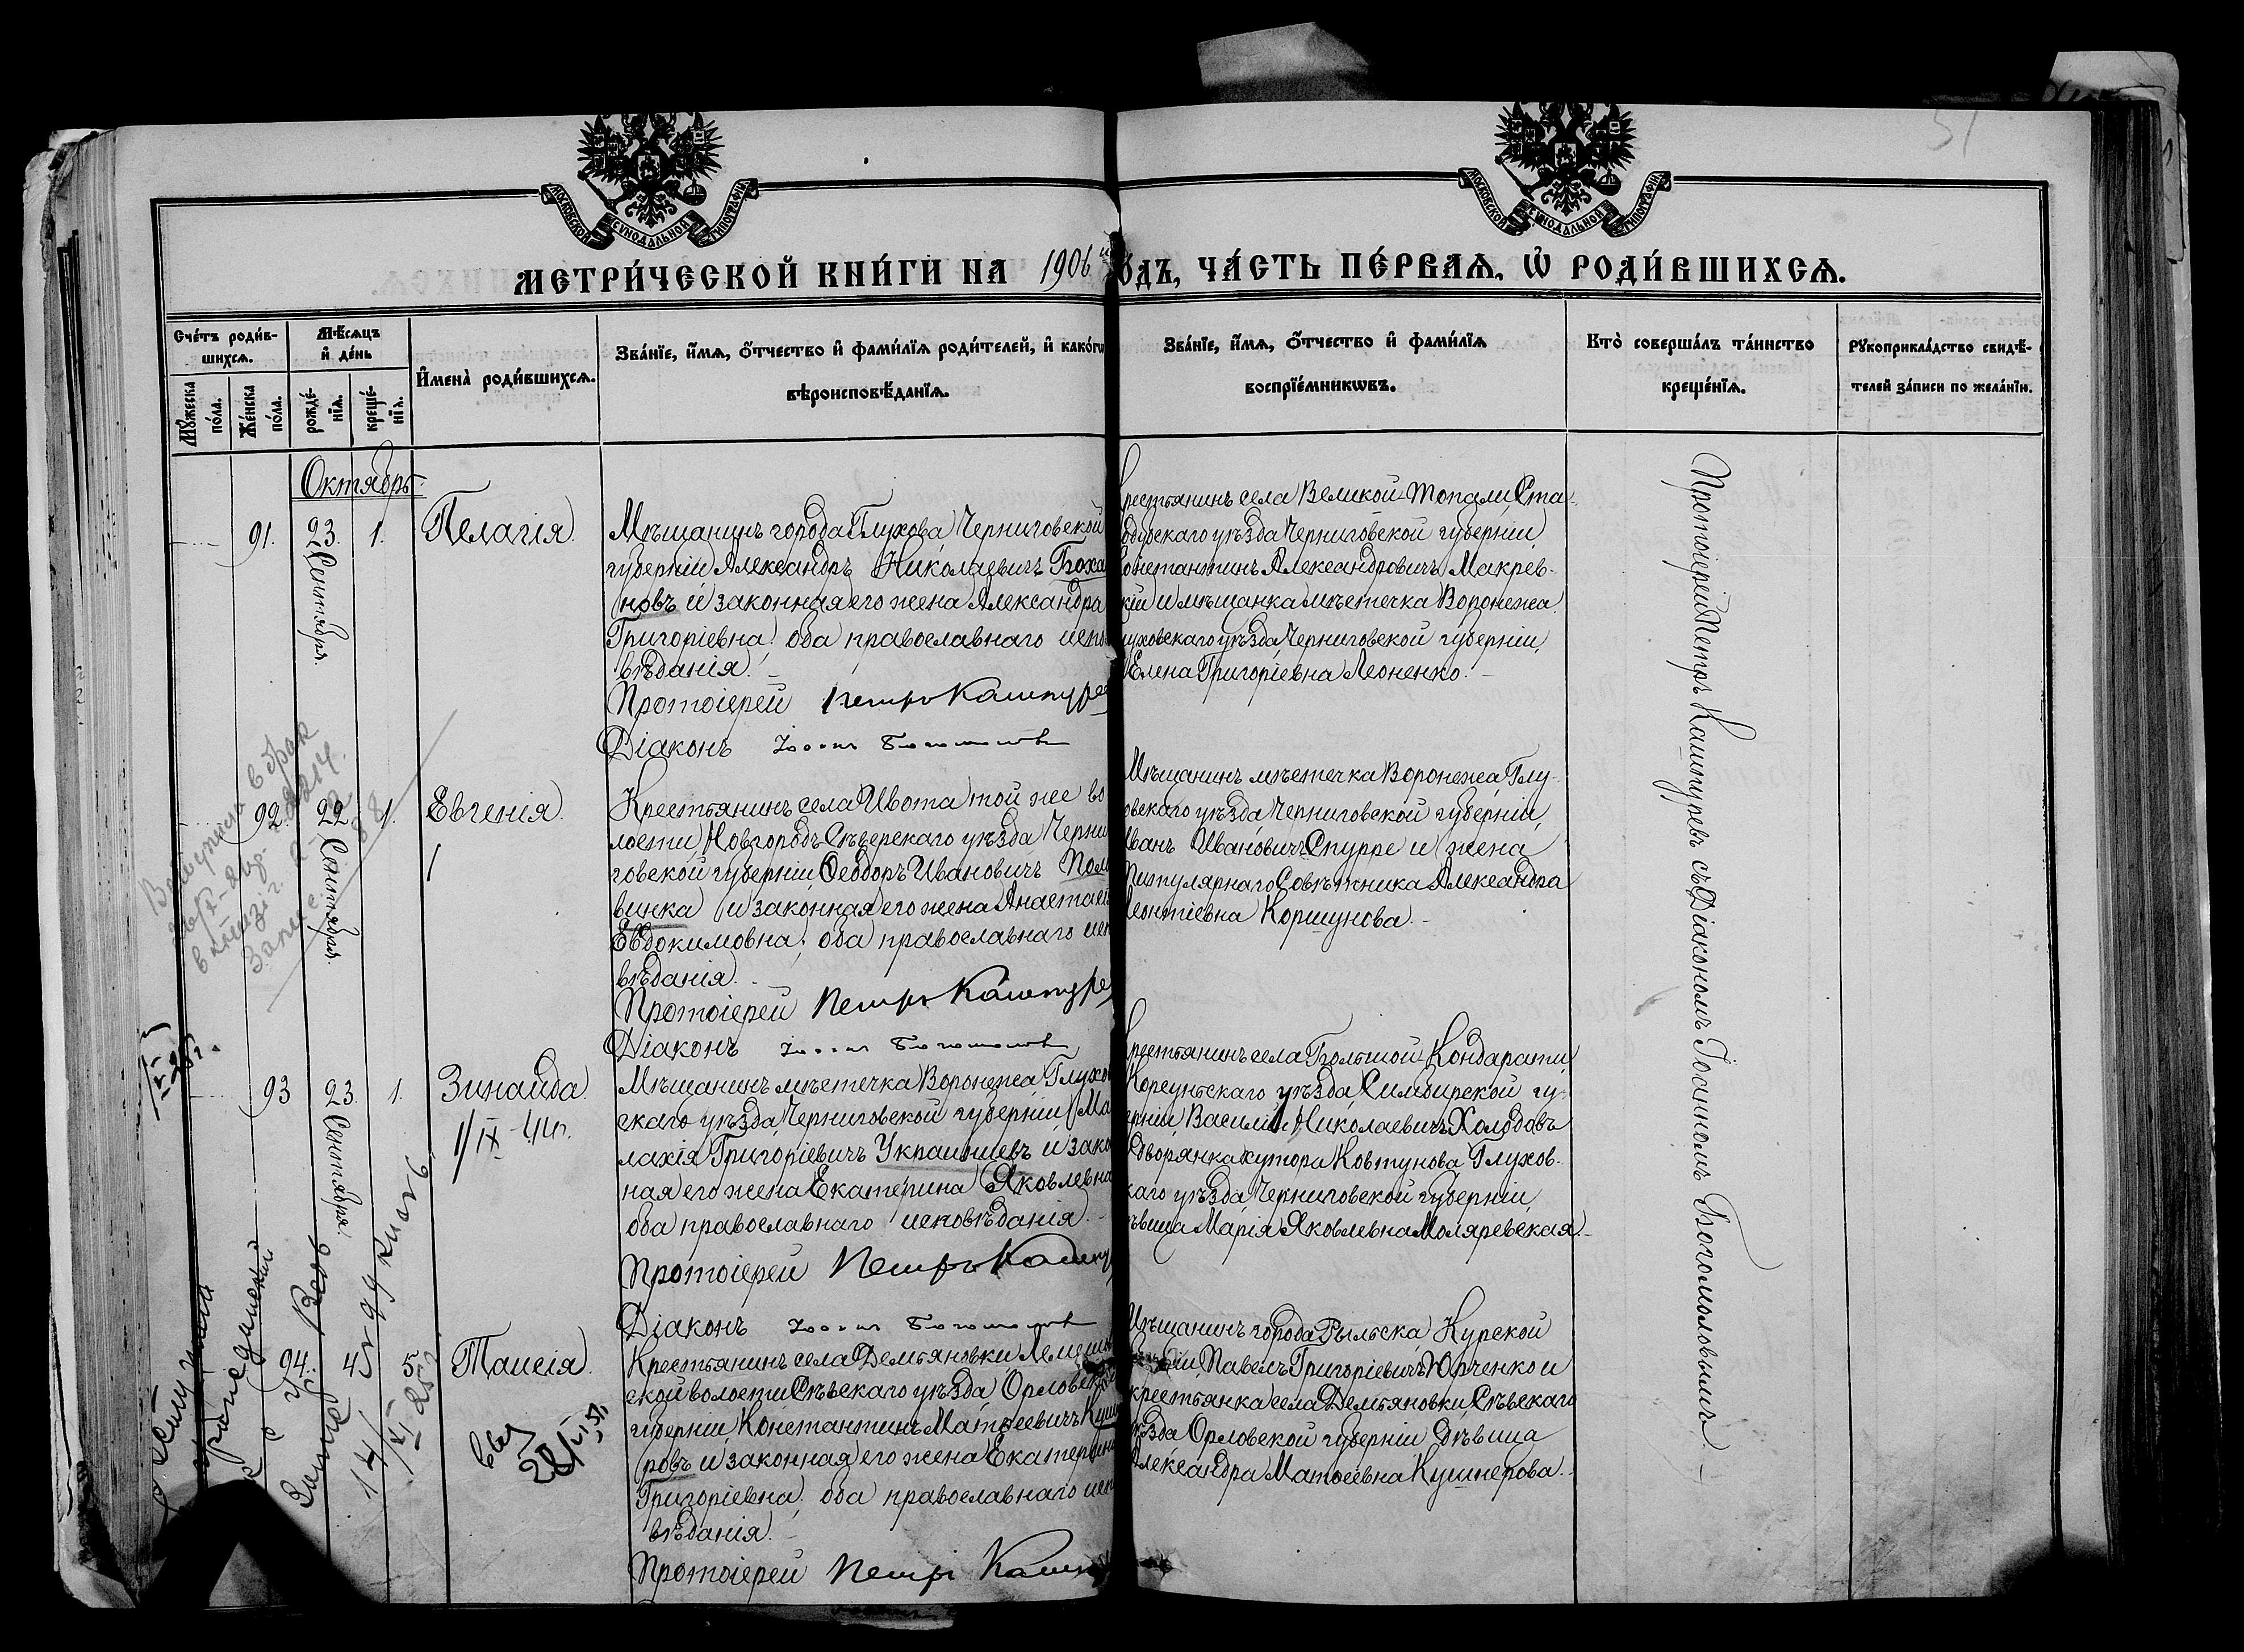 51
МОСКОВСКОЙ СѴНОДАЛЬНОЙ ТИПОГРАФІИ
МОСКОВСКОЙ СѴНОДАЛЬНОЙ ТИПОГРАФІИ
МЕТРИ́ЧЕСКОЙ КНИ́ГИ НА 1906 й
О́ДЪ, ЧА́СТЬ ПЕ́РВАѦ, Ѽ РОДИ́ВШИХСѦ.
Сче́тъ роди́в-
шихсѧ.
Мѣ́сѧцъ
и҆ де́нь
Мꙋ́жеска по́ла.
Же́нска по́ла.
рожде́-
нїѧ.
креще́-
нїѧ.
И҆мена̀ роди́вшихсѧ.
Зва́нїе, и҆́мѧ, ѻ҆́тчество и҆ фами́лїѧ роди́телей, и҆ како́гѡ
вѣроисповѣ́данїѧ.
Зва́нїе, и҆́мѧ, ѻ҆́тчество и҆ фами́лїѧ
воспрїе́мникѡвъ.
Кто̀ соверша́лъ та́инство
креще́нїѧ.
Рꙋкоприкла́дство свидѣ́-
телей за́писи по жела́нїю.
Октябрь.
91. 23. Сентября. 1. Пелагія.
Мѣщанинъ города Глухова Черниговской
губерніи Александръ Николаевичъ Боха
новъ и законная его жена Александра
Григоріевна; оба православнаго испо
вѣданія.
Протоіерей Петръ Кашпурев
Діаконъ Іоаннъ Богомоловъ
Крестьянинъ села Великой-Топали, Ста-
одубскаго уѣзда Черниговской губерніи,
Константинъ Александровичъ Макрев-
кій и мѣщанка мѣстечка Воронежа
луховскаго уѣзда, Черниговской губерніи,
Елена Григоріевна Леоненко.
92. 22 Сентября. 1. Евгенія.
Крестьянинъ села Ивота той же во
лости, Новгородъ-Сѣверскаго уѣзда Черни
говской губерніи, Ѳеодоръ Ивановичъ Поло
винка и законная его жена Анастасі
Евдокимовна; оба православнаго исп
вѣданія.
Протоіерей Петръ Кашпуре
Діаконъ Іоаннъ Богомоловъ
Мѣщанинъ мѣстечка Воронежа Глу-
овскаго уѣзда, Черниговской губерніи,
Иванъ Ивановичъ Спурре и жена
Титулярнаго Совѣтника Александра
Леонтіевна Коршунова.
93 23. Сентября. 1. Зинаида.
1/IX-44г.
Мѣщанинъ мѣстечка Воронежа Глухов
скаго уѣзда Черниговской губерніи Ма
лахія Григоріевичъ Украинцевъ и зако
ная его жена Екатерина Яковлевна
оба православнаго исповѣданія.
Протоіерей Петръ Кашпу
Діаконъ Іоаннъ Богомоловъ
Крестьянинъ села Большой Кондарати,
Корсуньскаго уѣзда, Симбирской гу-
ерніи Василій Николаевичъ Холодовъ
Дворянка хутора Ковтунова Глухов-
каго уѣзда, Черниговской губерніи,
ѣвица Марія Яковлевна Моляревская.
94. 4. 5. Таисія.
Крестьянинъ села Демьяновки Лемеш
ской волости Сѣвскаго уѣзда Орловск
губерніи, Константинъ Матѳеевичъ Куш
ровъ и законная его жена Екатерина
Григоріевна; оба православнаго исп
вѣданія.
Протоіерей Петръ Кашп
Мѣщанинъ города Рыльска Курской
Павелъ Григоріевичъ Юрченко и
крестьянка села Демьяновки, Сѣвскаго
ѣзда Орловской губерніи дѣвица
Александра Матѳеевна Кушнерова.
Протоіерей Петръ Кашпуревъ съ Діакономъ Іоанномъ Богомоловымъ.